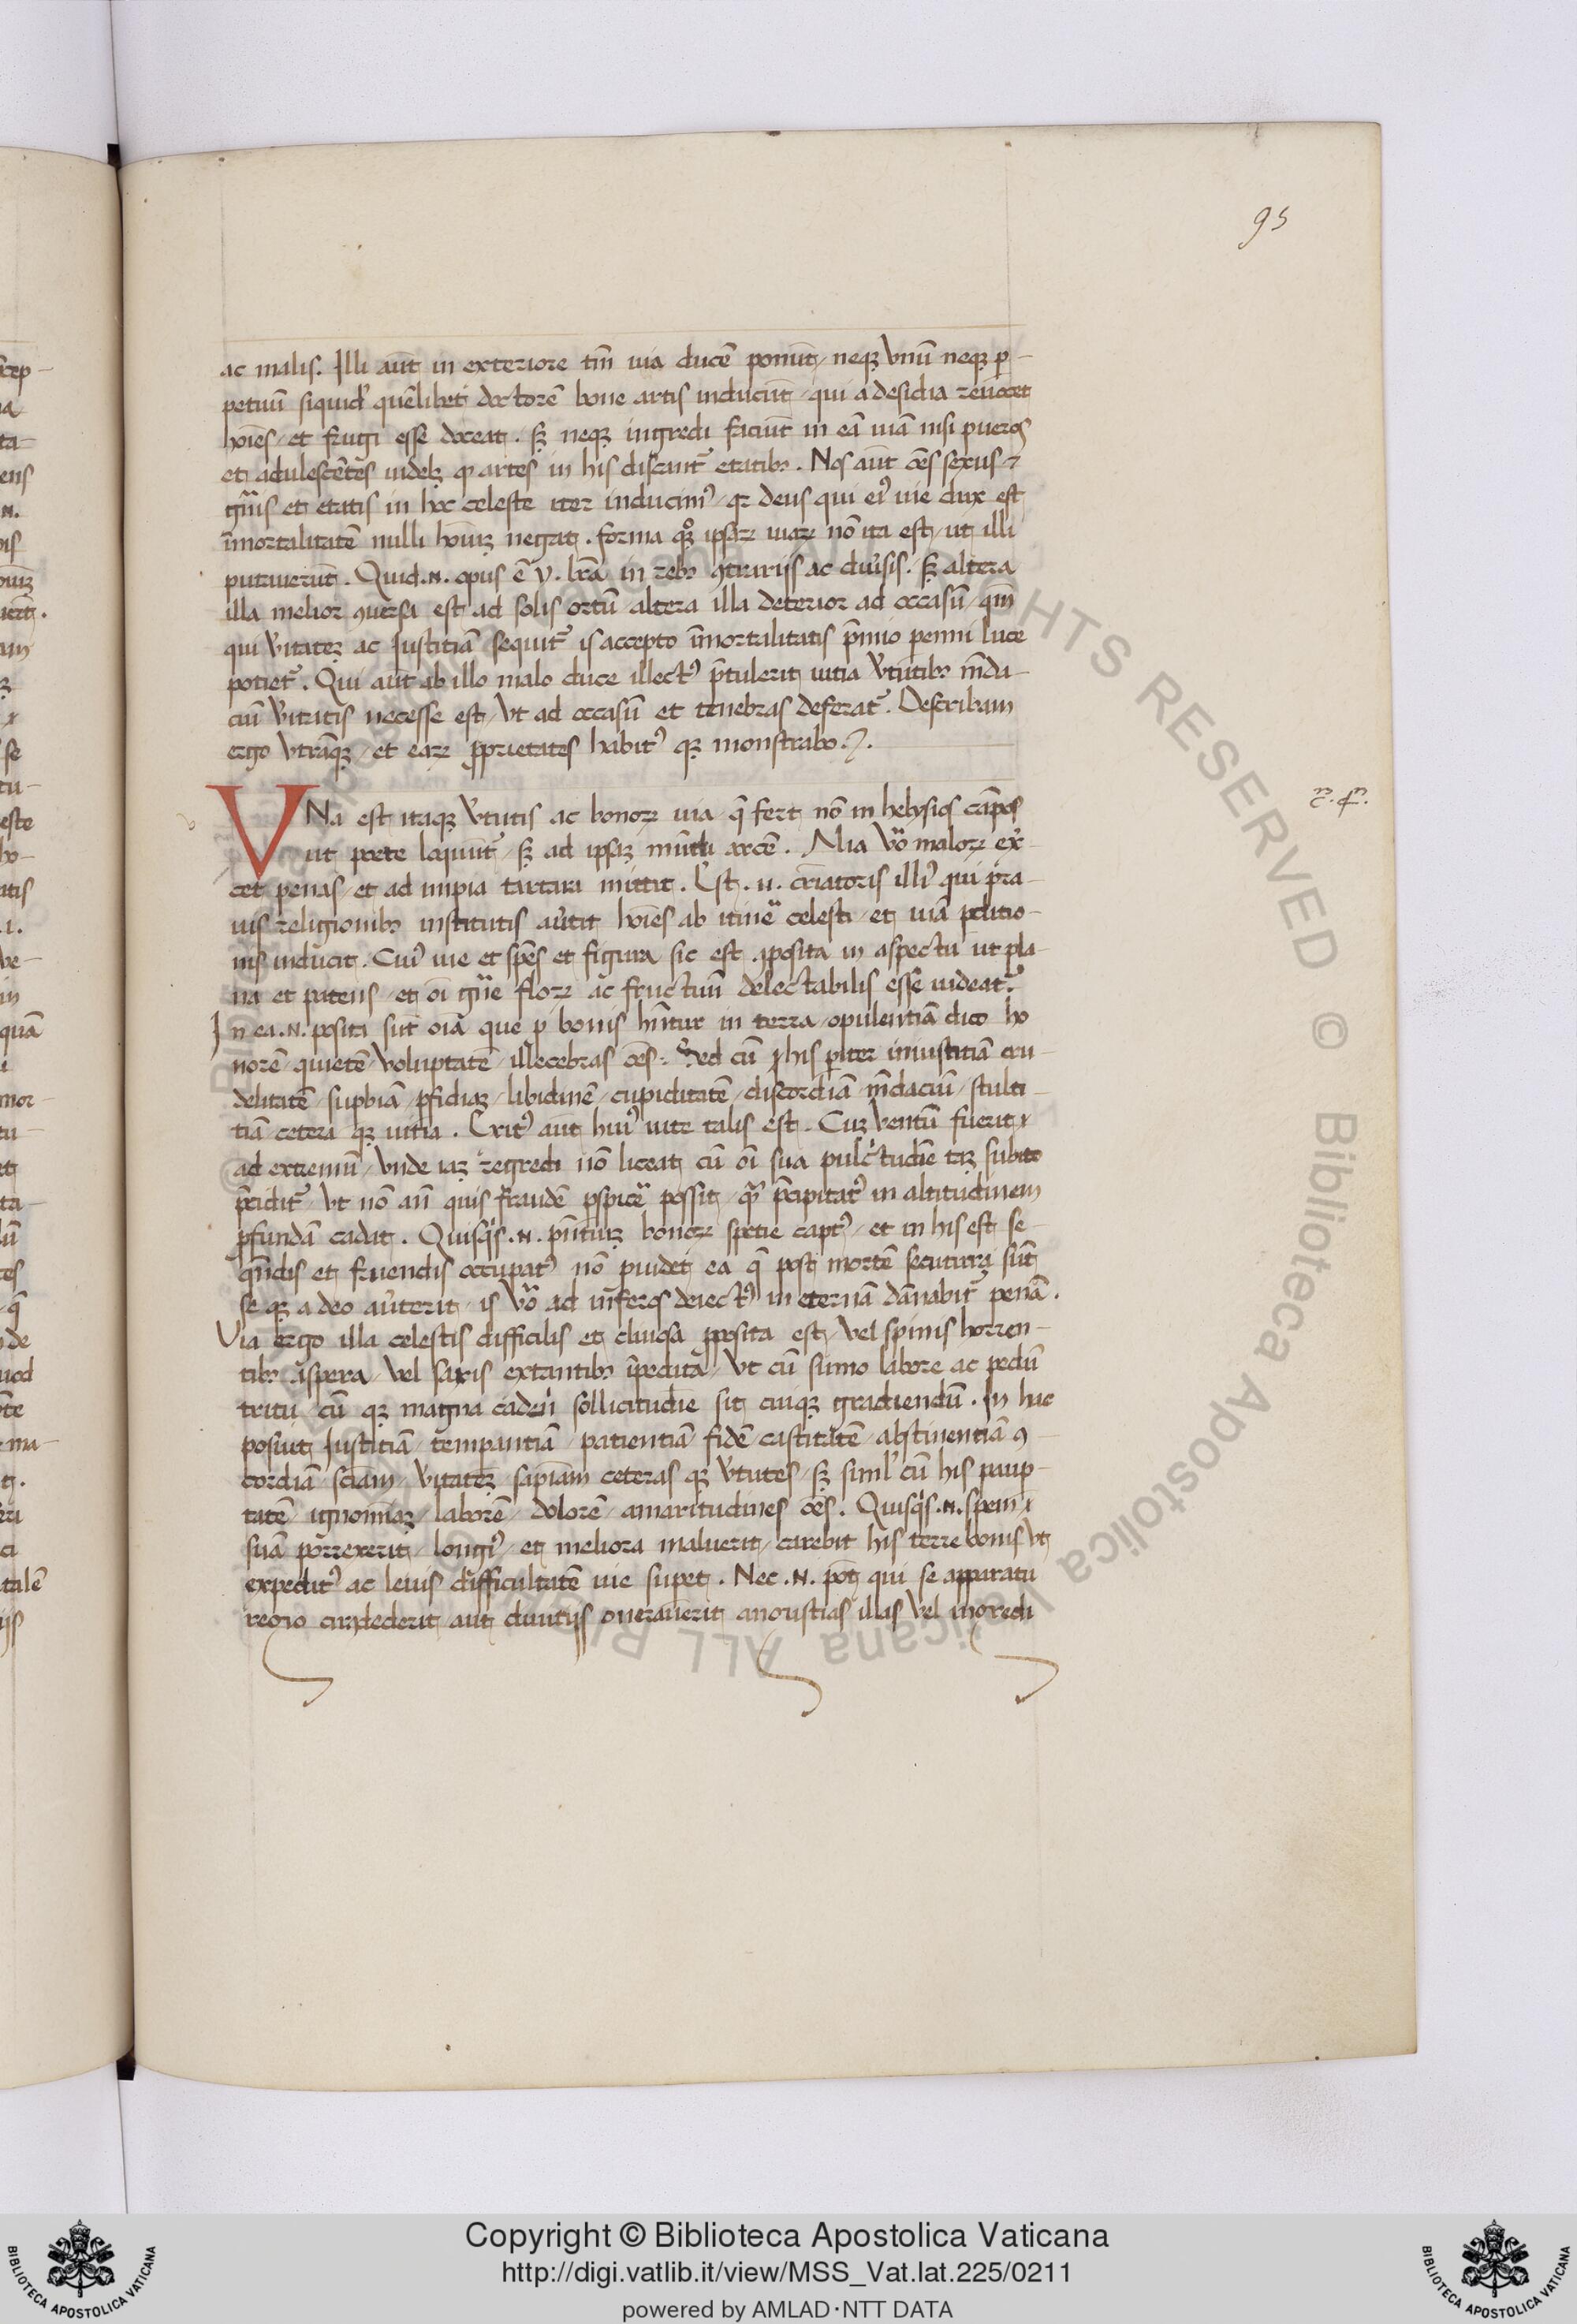 95
ac malis. Illi aūt in exteriore tm̄ uia ducē ponūt / neqꝫ vnū neqꝫ ꝑ-
petuū siquid' quēlibet doctorē bone artis inducūt / qui a desidia reuocet
hoīes / et frugi esse doceat. sꝫ neqꝫ ingredi faciūt in eā uiā nisi pueros
et adulescētes uidelꝫ ꝙ artes in his discant᷑ etatibꝫ. Nos aūt oēs sexus ⁊
gn̄is et etatis in hoc celeste iter inducimꝰ / qꝛ deus qui eiꝰ uie dux est
īmortalitatē nulli hoīuꝫ negat. forma qͦꝫ ipsaꝝ uiaꝝ nō ita est / ut illi
putauerūt. Quid .N. opus ē v. lr̄a in rebꝫ ꝯtrarijs ac diu'sis. sꝫ altera
illa melior ꝯuersa est ad solis ortū altera illa deterior ad occasū / qm̄
qui v'itateꝫ ac Justitiā sequit᷑ is accepto īmortalitatis p̄mio penni luce
potiet᷑. Qui aūt ab illo malo duce illectꝰ p̄tulerit uitia v'tutibꝫ m̄da-
ciū v'itatis necesse est / vt ad occasū et tenebras deferat᷑. Describam
ergo vtrāqꝫ / et eaꝝ ꝓprietates habitꝰ qꝫ monstrabo.
VNa est itaqꝫ v'tutis ac bonoꝝ uia / q̄ fert nō in helysios cāpos
ut poete loquūt᷑ / sꝫ ad ipsaꝫ mūdi arcē. Alia v̊o maloꝝ ex'-
cet penas / et ad impia tartara mittit. Est .n. cr̄iatoris illiꝰ qui pra-
uis religionibꝫ institutis au'tit hoīes ab itin̄e celesti / et uiā ꝑditio-
nis inducit. Cuiꝰ uie et sp̄es et figura sic est ꝯposita in aspectu ut pla-
na et patens / et oī gn̄e floꝝ ac fructuū delectabilis esse uideat᷑.
In ea .N. posita sūt oīa que ꝓ bonis hn̄tur in terra / opulentiā dico ho
norē / quietē / voluptatē / illecebras oēs. Sed cū his pariter iniustitiā cru-
delitatē / supbiā / ꝑfidiaꝫ / libidinē / cupiditatē / discordiā / m̄daciū / stulti-
tiā / cetera qꝫ uitia. Exitꝰ aūt huiꝰ uite talis est. Cuꝫ ventū fuerit
ad extremū / vnde iaꝫ regredi nō liceat cū oī sua pulc'tudīe taꝫ subito
p̄cidit᷑ / vt nō an̄ quis fraudē ꝑspicē possit / qͣꝫ p̄cipitatꝰ in altitudinem
ꝓfundā cadat. Quisqͥs .N. pn̄tiuꝫ bonoꝝ spetie captꝰ / et in his est se-
qn̄dis et fruendis occupatꝰ nō puidet ea q̄ post mortē secutura sūt
se qꝫ a deo au'terit / is v̊o ad inferos deiectꝰ in eternā dānabit᷑ penā.
Via ergo illa celestis difficilis et cliuosa ꝓposita est / vel spinis horren-
tibꝫ aspera / vel saxis extantibꝫ īpedita / vt cū sūmo labore ac pedū
tritu / cū qꝫ magna cadendi sollicitudīe sit cuiqꝫ gradiendū. In hac
posuit Justitiā / tempantiā / patientiā / fidē / castitatē / abstinentiā ꝯ-
cordiā / sciam / v'itateꝫ / sapiam ceteras qꝫ v'tutes / sꝫ siml' cū his paup-
tatē / ignominiaꝫ / laborē / dolorē / amaritudines oēs. Quisqͥs .N. spem
suā porrexerit / longiꝰ / et meliora maluerit / carebit his terre bonis vt
expeditꝰ ac leuis difficultatē uie supet. Nec .N. pōt qui se apparatu
regio circūdederit aut diuitijs onerauerit angustias illas vel ingredi
Copyright © Biblioteca Apostolica Vaticana
http://digi.vatlib.it/view/MSS_Vat.lat.225/0211
powered by AMLAD·NTT DATA
BIBLIOTECA APOSTOLICA VATICANA
BIBLIOTECA APOSTOLICA VATICANA
© Biblioteca Apostolica Vaticana ALL RIGHTS RESERVED